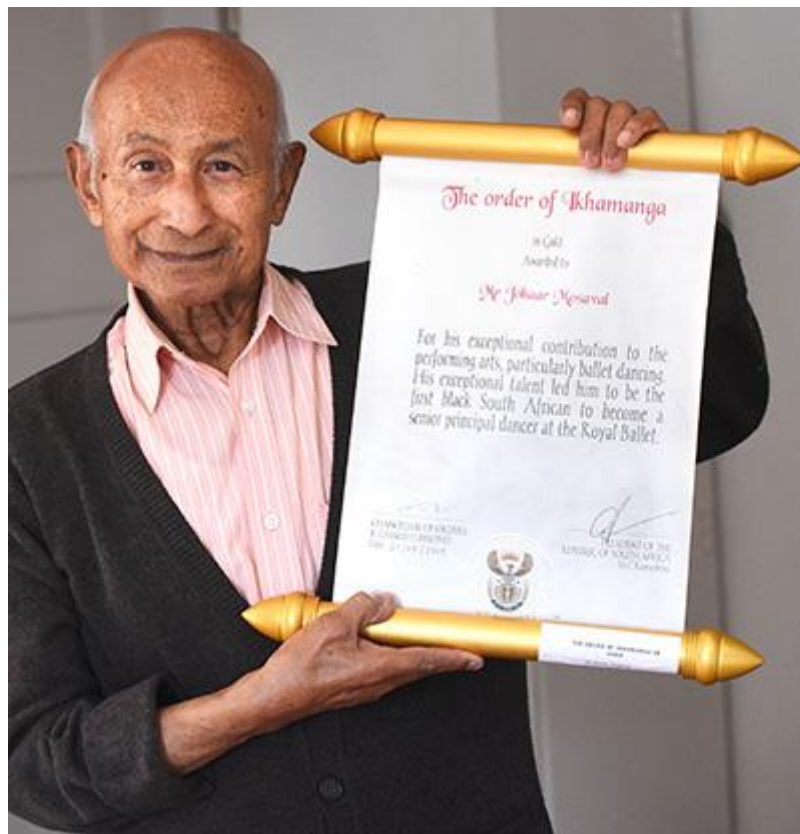 The order of Ikhamanga
in Gold
Awarded to
Mr Johaar Mosaval
For his exceptional contribution to the
performing arts, particularly ballet dancing.
His exceptional talent led him to be the
first black South African to become a
senior principal dancer at the Royal Ballet.
PRESIDENT OF THE
REPUBLIC OF SOUTH AFRICA
THE ORDER OF IKHAMANGA IN
GOLD